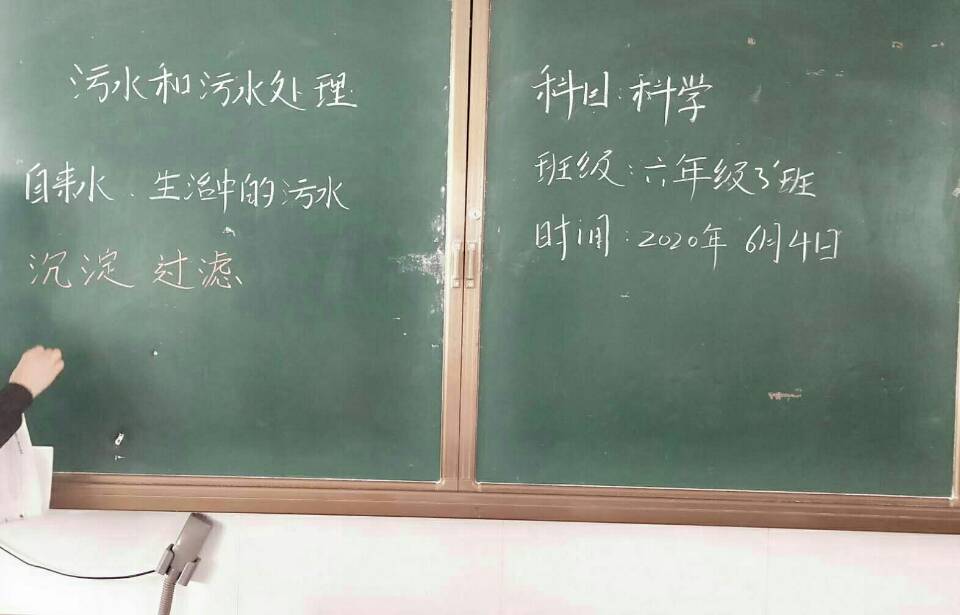 污水和污水处理
自来水、生活中的污水
沉淀 过滤
科目:科学
班级:六年级3班
时间:2020年6月4日